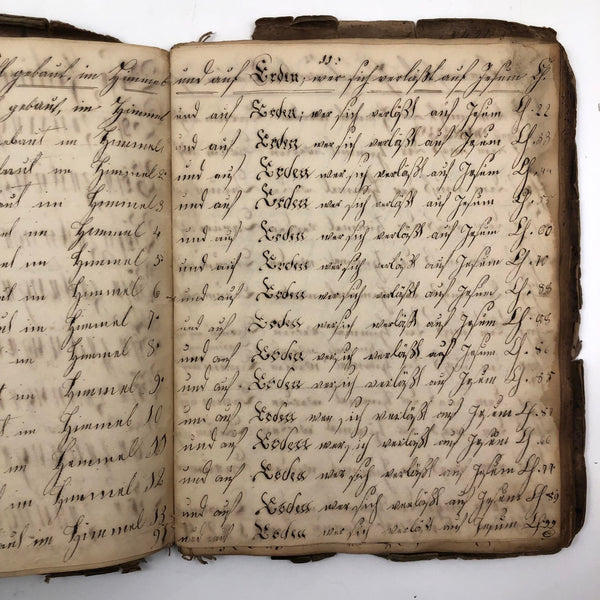 gebaut, im Himmel
gebaut, im Himmel
gebaut im Himmel
im Himmel 2
im Himmel 3
im Himmel 4
im Himmel 5
im Himmel 6
im Himmel 7
im Himmel 8
im Himmel 9
im Himmel 10
im Himmel 11
im Himmel 12
im Himmel 13
11:
und auf Erden, wer sich verläßt auf Jesum Ch.
und auf Erden, wer sich verläßt auf Jesum Ch. 22
und auf Erden wer sich verläßt auf Jesum Ch. 33
und auf Erden wer sich verläßt auf Jesum Ch. 44
und auf Erden wer sich verläßt auf Jesum Ch. 55
und auf Erden wer sich verläßt auf Jesum Ch.
und auf Erden wer sich verläßt auf Jesum Ch.
und auf Erden wer sich verläßt auf Jesum Ch. 88
und auf Erden wer sich verläßt auf Jesum Ch.
und auf Erden wer sich verläßt auf Jesum Ch.
und auf Erden wer sich verläßt auf Jesum Ch.
und auf Erden wer sich verläßt auf Jesum Ch.
und auf Erden wer sich verläßt auf Jesum Ch.
und auf Erden wer sich verläßt auf Jesum Ch.
und auf Erden wer sich verläßt auf Jesum Ch. 89
und auf Erden wer sich verläßt auf Jesum Ch.